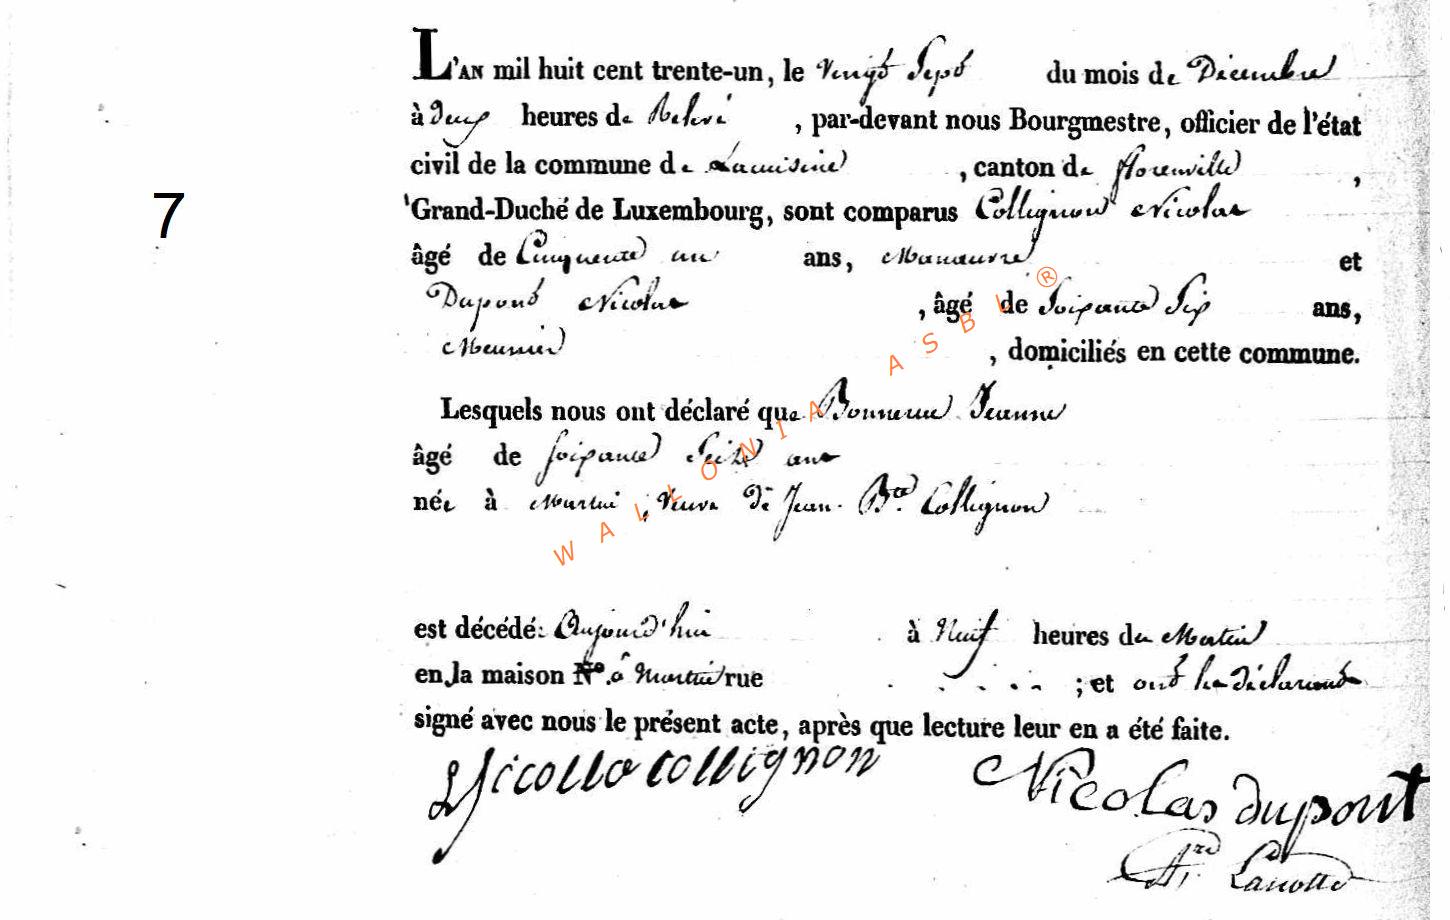 L'AN mil huit cent trente-un, le vingt Sept du mois de Décembre
à deux heures de Relevé , par-devant nous Bourgmestre, officier de l'état
civil de la commune de Lacuisine , canton de florenville ,
7
Grand-Duché de Luxembourg, sont comparus Collignon Nicolas
âgé de Cinquante un ans, Manœuvre et
Dupont Nicolas , âgé de Soixante Six ans,
Meunier , domiciliés en cette commune.
Lesquels nous ont déclaré que Jeanne
âgé de soixante Seize ans
née à Martué , Veuve de Jean Bte Collignon
est décédé Aujourd'hui à Neuf heures du Matin
en la maison N° à Martué rue . . . . . ; et ont les déclarants
signé avec nous le présent acte, après que lecture leur en a été faite.
collignon Nicolas dupont
Lanotte
WALLONIA ASBL ®